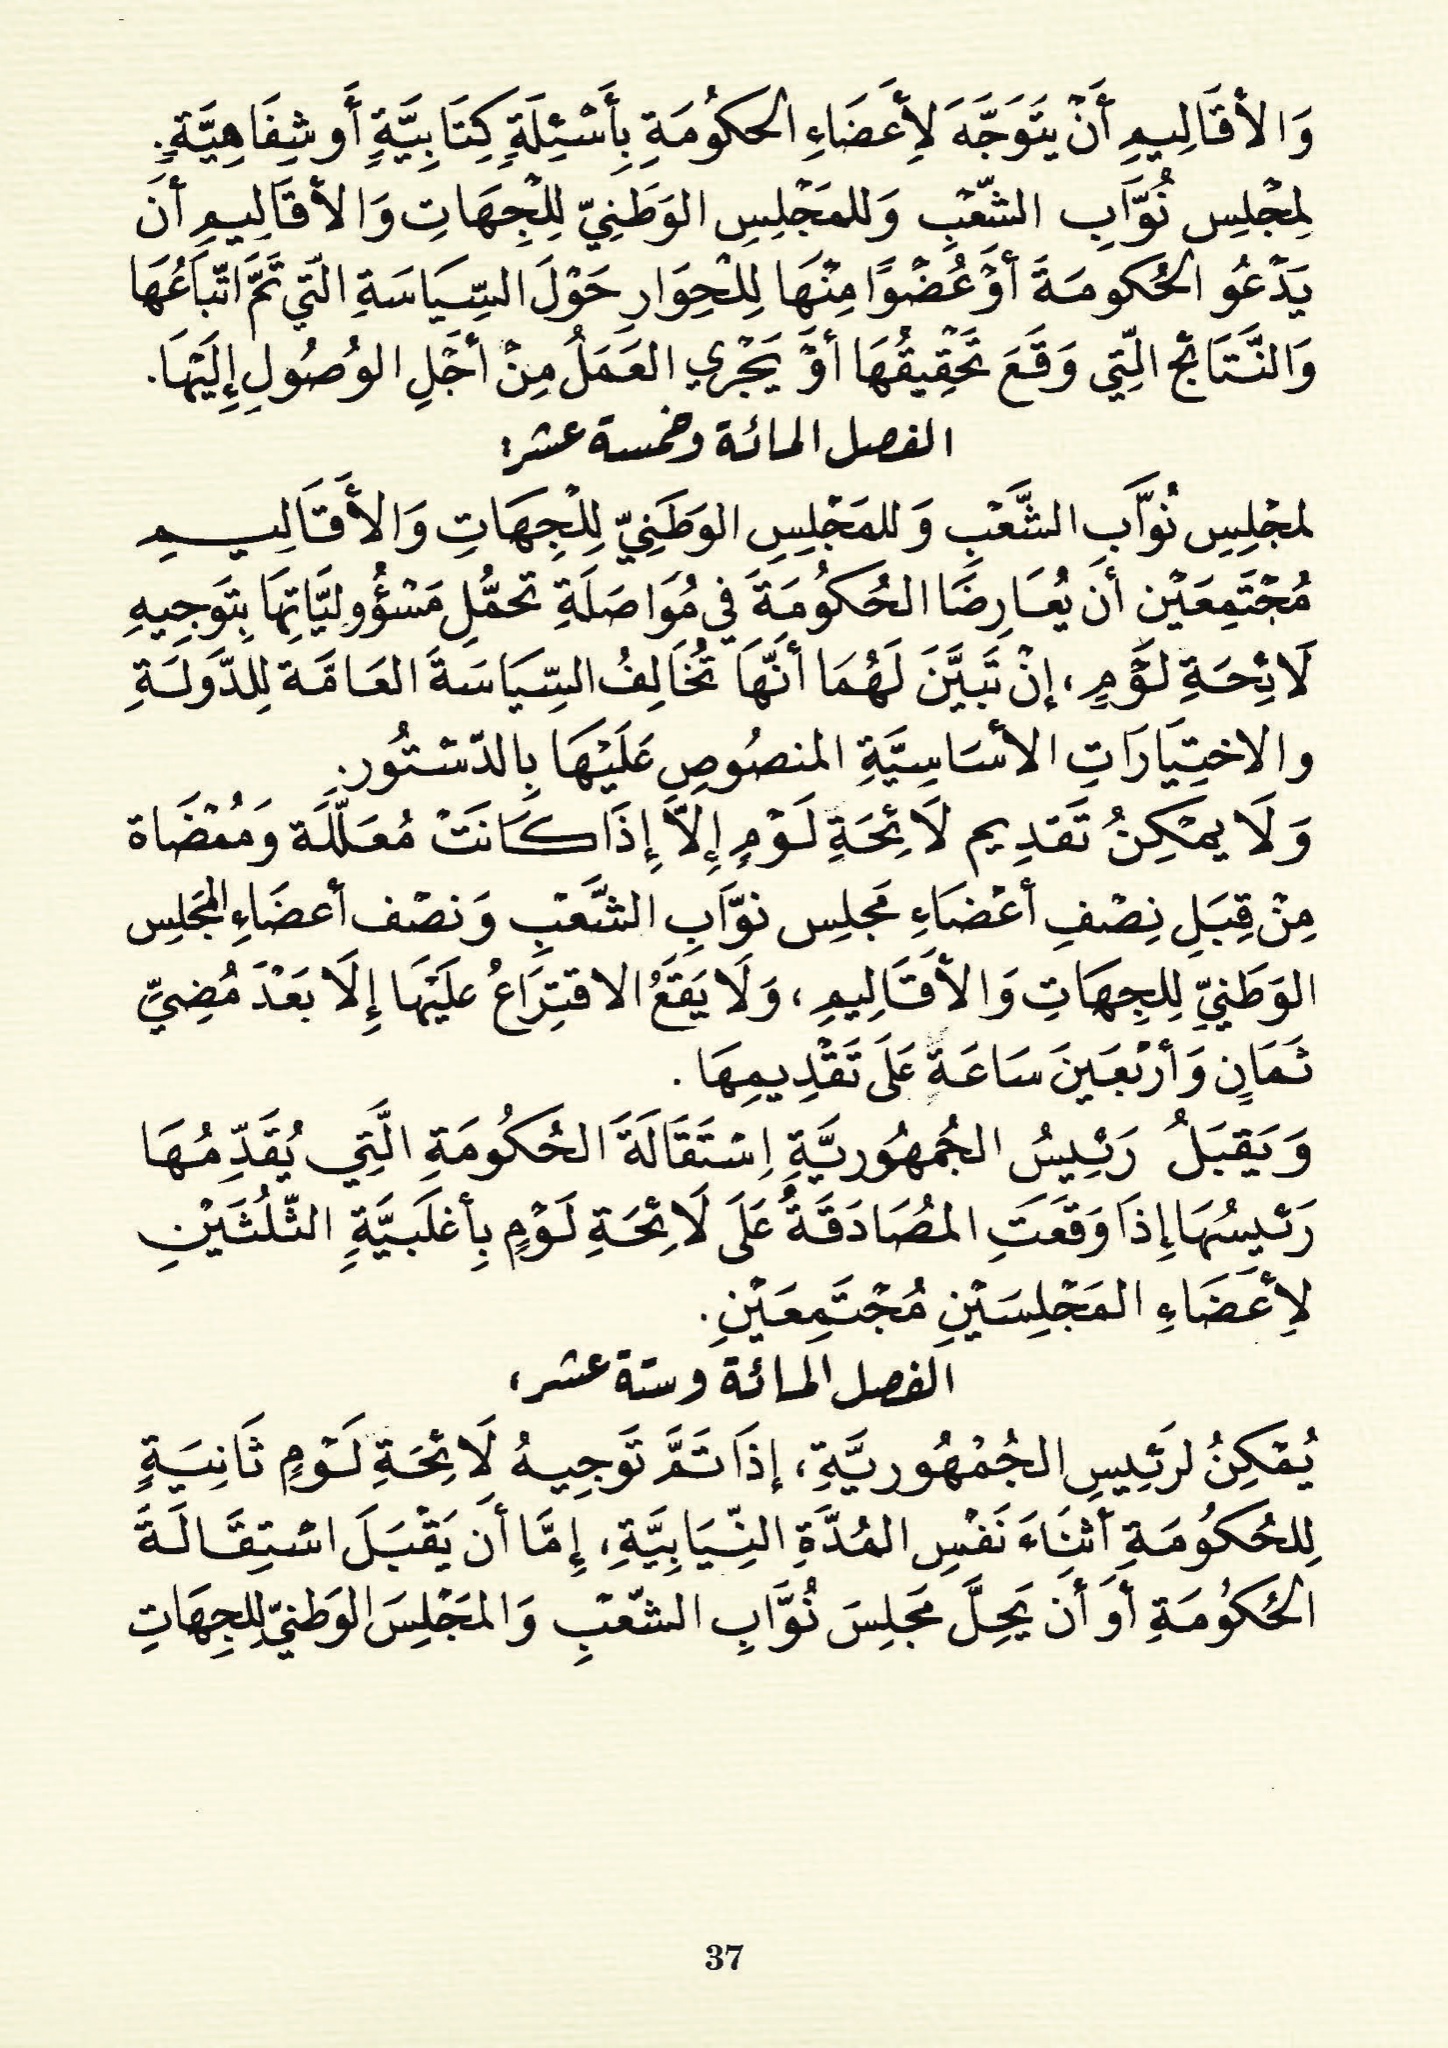 وَالأقَالِيمِ أَنْ يتَوَجَّهَ لِأعَضَاءِ الحكُومَةِ بِأَسْئِلَةٍ كِتَابِيَّةٍ أَو شِفَاهِيَّةٍ.
لمجْلِس نُوَّابِ الشّعْبِ وَللمَجْلِسِ الوَطَنِيّ لِلْجِهَاتِ وَالأقَالِيمِ أنَ
يَدْعُو الحُكومَةَ أوْ عُضْوًا مِنْهَا لِلْحِوَارِ حَوْلَ السِّيَاسَةِ الّتي تَمَّ اتّبَاعُهَا
وَالنَّتَائج الّتِي وَقَعَ تَحْقِيقُهَا أوْ يَجْرِي العَمَلُ مِنْ أجْلِ الوُصُولِ إِلَيْهَا.
الفصل المائة وخمسة عشر:
لمجْلِسِ نُوَّابِ الشَّعْبِ وَللمَجْلِسِ الوَطَنِيّ لِلْجِهَاتِ وَالأَقَالِيمِ
مُجْتَمِعَيْن أن يُعَارِضَا الحُكُومَةَ في مُوَاصَلَةِ تحمُّلِ مَسْؤُولِيَّاتِهَا بِتَوجِيهِ
لَائِحَةِ لَوْمٍ، إنْ تَبَيَّنَ لَهُمَا أنّهَا تُخَالِفُ السِّيَاسَةَ العَامَّة لِلدَّولَةِ
والاختِيَارَاتِ الأسَاسِيَّةِ المنصُوصِ عَلَيْهَا بِالدّسْتُور.
وَلَا يمْكِنُ تَقدِيم لَائِحَةِ لَوْمٍ إِلاَّ إِذَا كَانَتْ مُعَلَّلَة وَمُمْضَاة
مِنْ قِبَلِ نِصْفِ أعْضَاءِ مَجلِس نوَّابِ الشَّعْبِ وَنصْف أعضَاءِ المجَلِس
الوَطَنيِّ لِلجِهَاتِ وَالأقَالِيمِ، وَلَا يَقَعُ الاقتِرَاعُ علَيْهَا إِلَا بَعْدَ مُضِيِّ
ثَمَانٍ وَأرْبَعَينَ سَاعَةً عَلَى تَقْدِيمِهَا.
وَيَقبَلُ رَئِيسُ الجُمهُوريَّةِ اِسْتَقَالَةَ الحُكُومَةِ الَّتِي يُقَدِّمُهَا
رَئيسُهَا إِذَا وَقَعَتِ المصَُادَقَةُ عَلَى لَائِحَةِ لَوْمٍ بِأغلَبيَّةِ الثّلُثَيْنِ
لِأعَضَاءِ المَجْلِسَيْنِ مُجْتَمِعَيْنِ.
الفصل المائة وستة عشر:
يُمْكِنُ لرَئِيسِ الجُمْهُوريَّةِ، إذَا تَمَّ تَوجِيهُ لَائِحَةِ لَوْمٍ ثَانِيَةٍ
لِلحُكُومَةِ أثنَاءَ نَفْسِ المُدَّةِ النِّيَابِيَّةِ، إِمَّا أن يَقْبَلَ اسْتِقَالَةَ
الحُكُومَةِ أو أن يَحِلَّ مَجَلِسَ نُوَّابِ الشّعْبِ وَالمجَلِسَ الوَطنيّ لِلجِهَاتِ
37